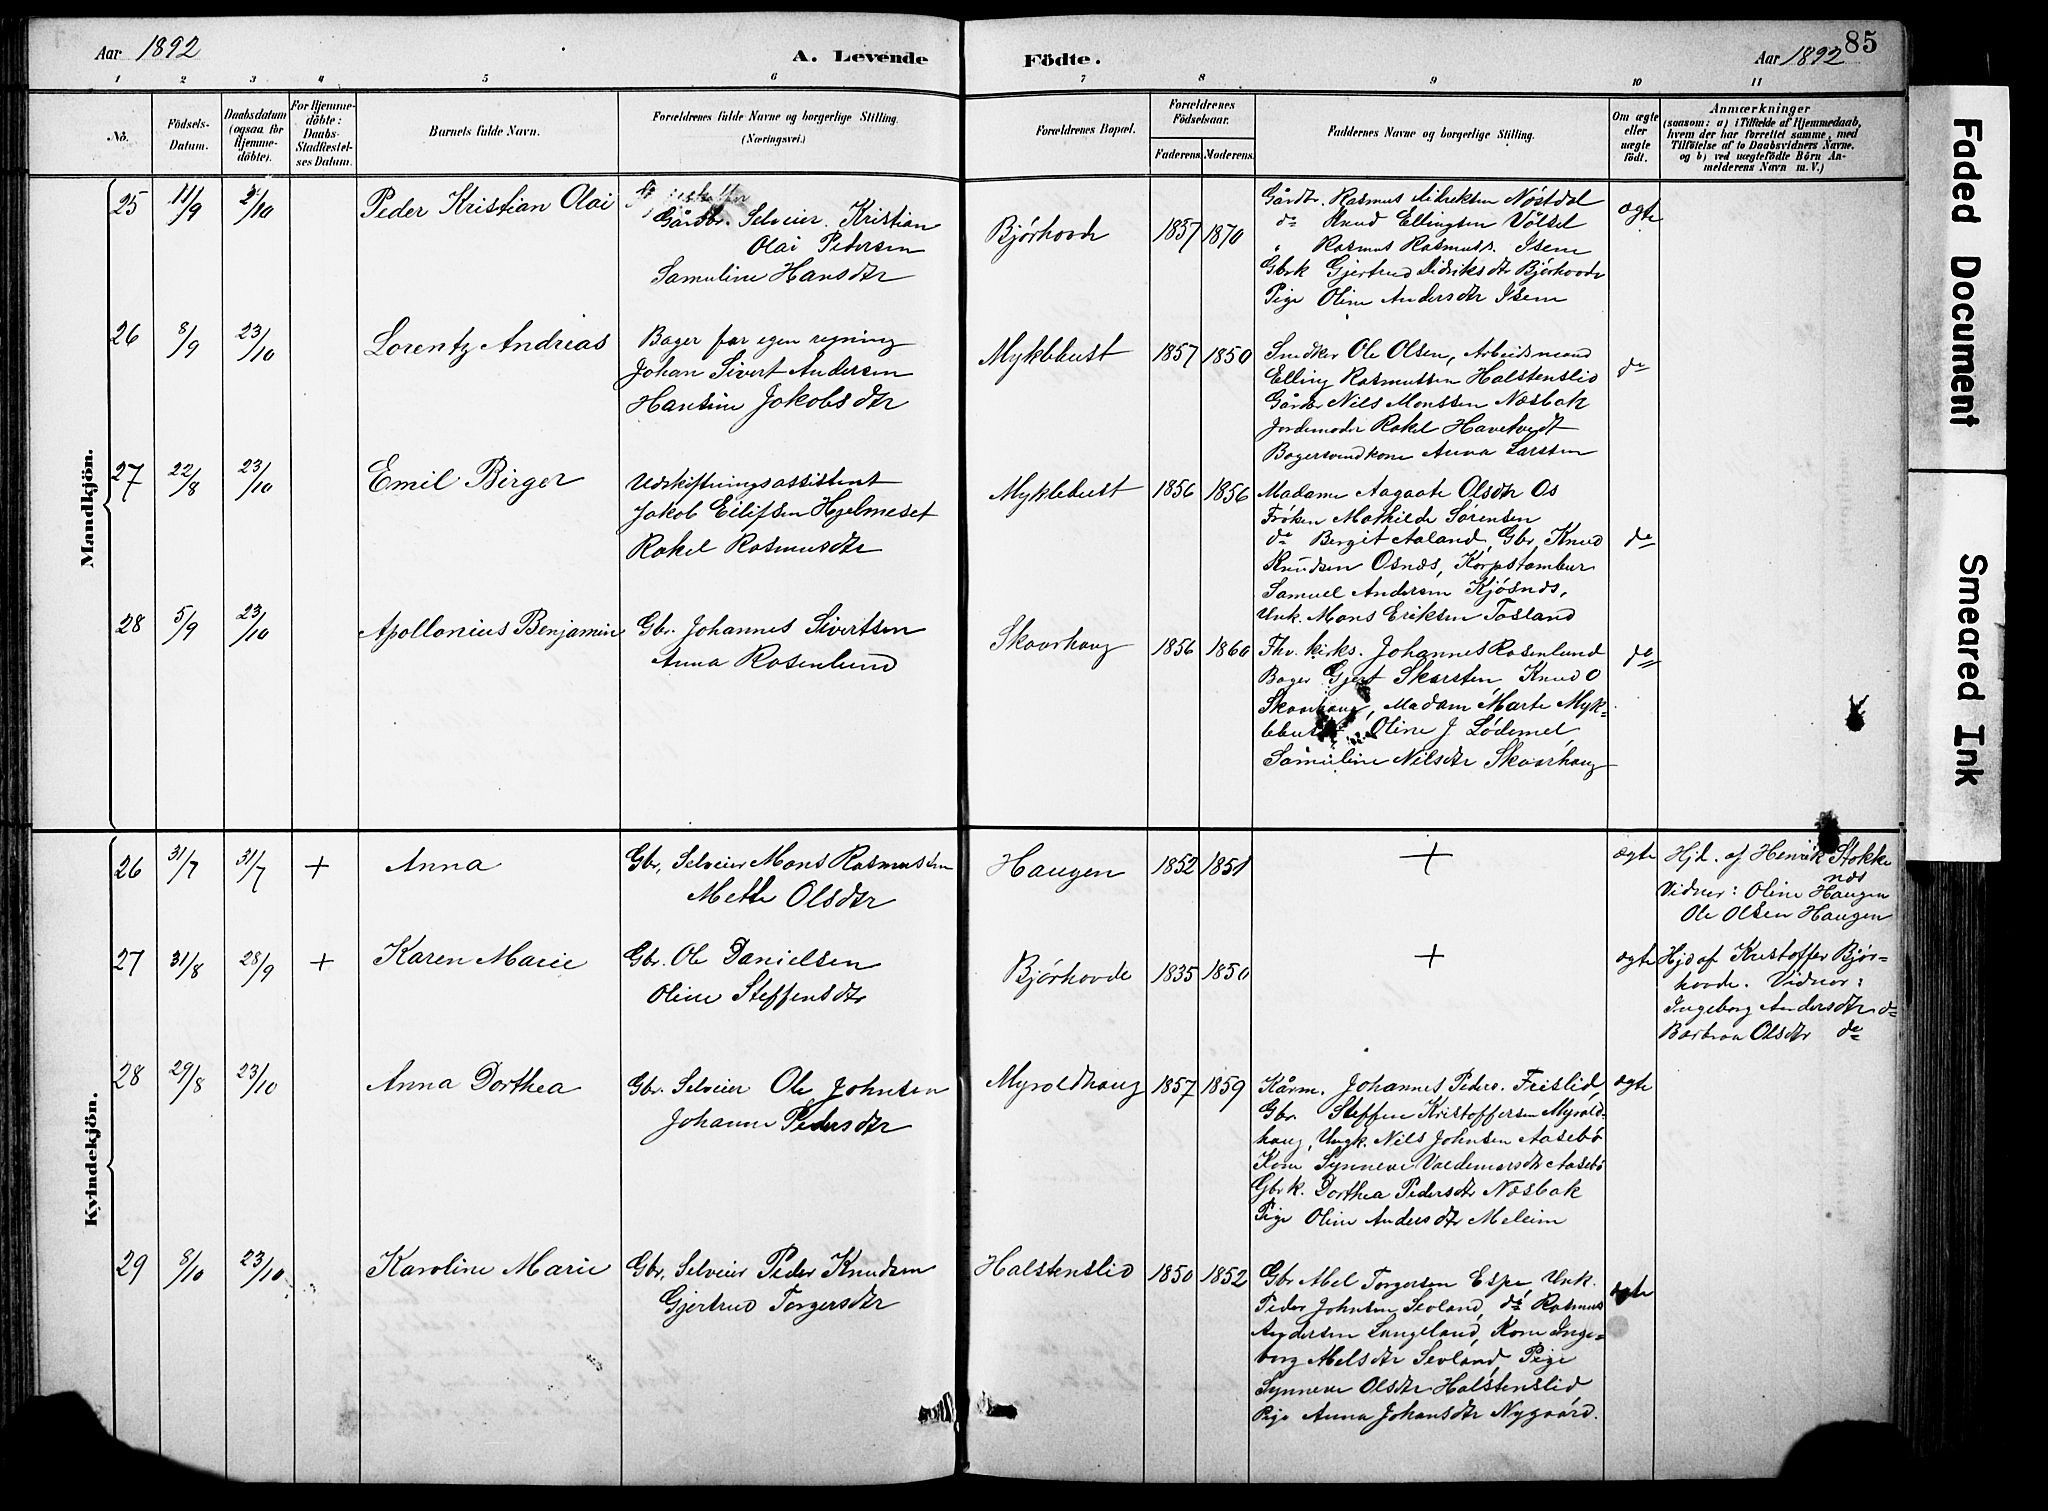 Aar 1892
A. Levende
Födte.
Aar 1892
85
1 2 3 4 5 6 7 8 9 10 11
No.
Födsels-
Datum.
Daabsdatum
(ogsaa for
Hjemme-
döbte).
For Hjemme-
döbte:
Daabs-
Stadfæstel-
ses Datum.
Barnets fulde Navn.
Forældrenes fulde Navne og borgerlige Stilling.
(Næringsvei.)
Forældrenes Bopæl.
Forældrenes
Födselsaar.
Faderens. Moderens.
Faddernes Navne og borgerlige Stilling.
Om ægte
eller
uægte
födt.
Anmærkninger
(saasom: a) i Tilfælde af Hjemmedaab,
hvem der har forrettet samme, med
Tilföielse af to Daabsvidners Navne.
og b) ved uægtefödte Börn An-
melderens Navn m. V.)
Mandkjön.
25 11/9 2/10 Peder Kristian Olai
Gårdbr. Selveier Kristian
Olai Pedersen
Samuline Hansdtr
Bjørhovde 1857 1870
Gårdbr. Rasmus Didriksen Nöstdal
do Knud Ellingsen Völsel
" Rasmus Rasmuss. Isem
Gbrk Gjertrud Didriksdtr Bjørhovde
Pige Oline Andersdtr Isem
ægte
26 8/9 23/10 Lorentz Andreas
Bager for egen regning
Johan Sivert Andersen
Hansine Jakobsdtr
Myklebust 1857 1850
Snedker Ole Olsen, Arbeidsmand
Elling Rasmussen Halstenslid
Gårdbr Nils Monssen Næsbak
Jordemoder Rakel Havetvedt
Bagersvendkone Anna Larssen
do
27 22/8 23/10 Emil Birger
Udskiftningsassistent
Jakob Eilifsen Hjelmeset
Rakel Rasmusdtr
Myklebust 1856 1856
Madame Aagaate Olsdtr Os
Frøken Mathilde Sørensen
do Bergit Aaland, Gbr. Knud
Knudsen Osnes, Korpstambur
Samuel Andersen Kjösnæs,
Unk. Mons Eriksen Tasland
do
28 5/9 23/10 Apollonius Benjamin
Gbr. Johannes Sivertsen
Anna Rosenlund
Skaarhaug 1856 1860
Fhv. kirks. Johannes Rosenlund
Bager Gjert Skarsten Knud O
Skaarhaug, Madam Marte Myk-
lebust Oline J Lödemel
Samuline Nilsdtr Skaarhaug
do
Kvindekjön.
26 31/7 31/7 + Anna
Gbr. Selveier Mons Rasmussen
Mette Olsdtr
Haugen 1852 1851
+
ægte
Hjd. af Henrik Stokke
næs
Vidner: Oline Haugen
Ole Olsen Haugen
27 31/8 28/9 + Karen Marie
Gbr. Ole Danielsen
Oline Steffensdtr
Bjørhovde 1835 1850
+
ægte
Hjd af Kristoffer Bjør-
hovde. Vidner:
Ingeborg Andersdtr do
Barbraa Olsdtr do
28 29/8 23/10 Anna Dorthea
Gbr. Selveier Ole Johnsen
Johanne Pedersdtr
Myroldhaug 1857 1859
Kårm. Johannes Peders. Frislid
Gbr. Steffen Kristoffersen Myrold-
haug, Ungk. Nils Johnsen Aasebö
Kone Synneve Valdemarsdtr Aasebö
Gbrk. Dorthea Pedersdtr Næsbak
Pige Oline Andersdtr Meleim
ægte
29 8/10 23/10 Karoline Marie
Gbr. Selveier Peder Knudsen
Gjertrud Torgersdtr
Halstenslid 1850 1852
Gbr Mel Torgersen Espe, Unk.
Peder Johnsen Sevland, do Rasmus
Andersen Langeland, Kone Inge-
borg Melsdtr Sevland, Pige
Synneve Olsdtr Halstenslid
Pige Anna Johansdtr Nygaard.
ægte
Faded Document
Smeared Ink